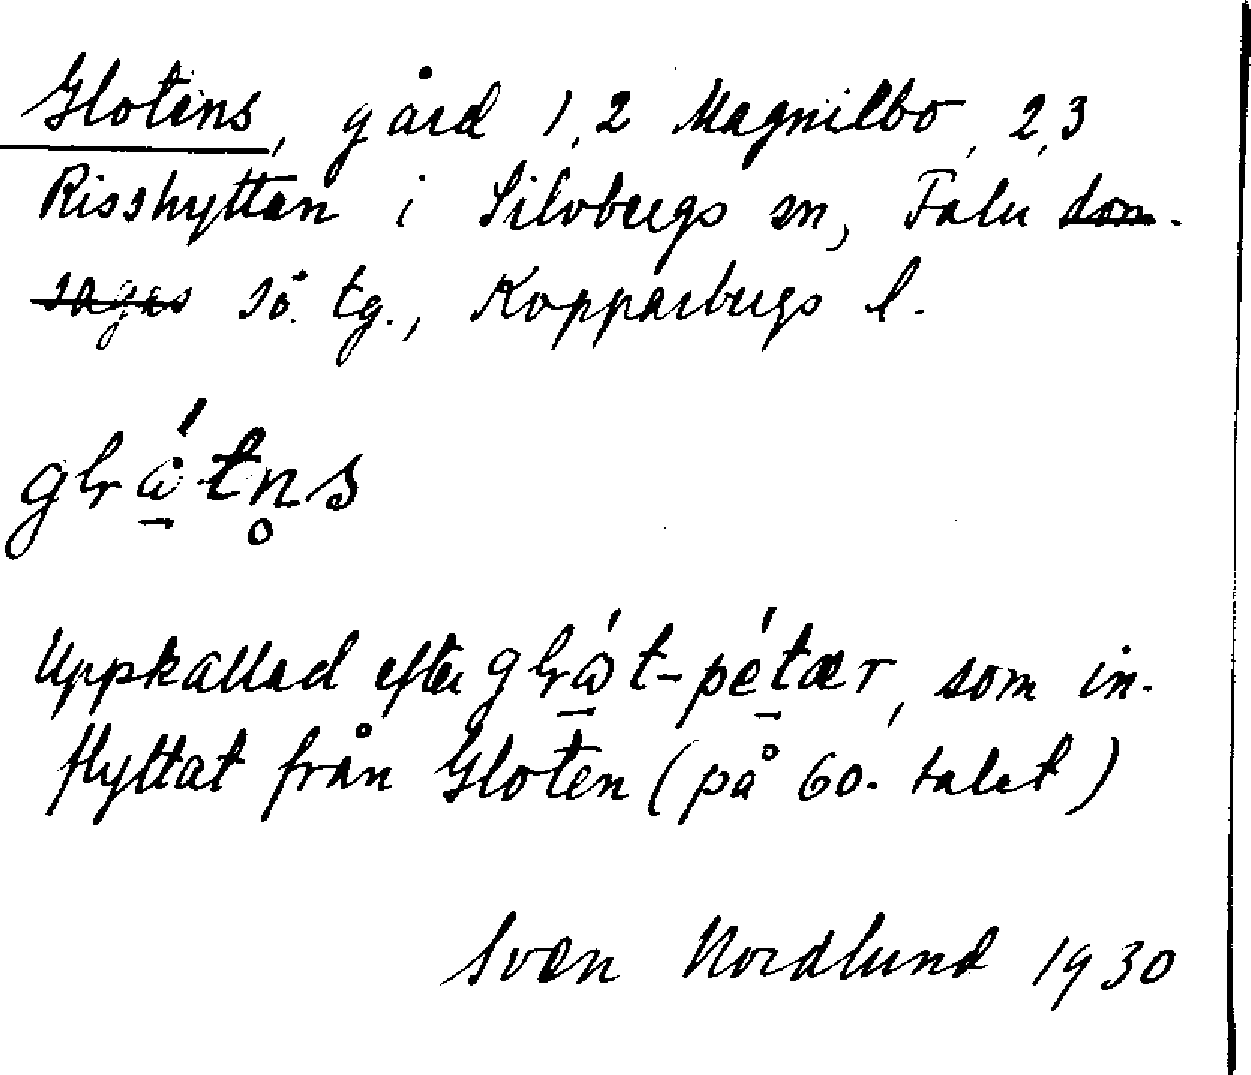 Glotens, gård 1,2 Magnilbo, 2,3
Risshyttan i Silvbergs sn, Falu dom-
sagas sö. tg., Kopparbergs l.
Uppkallad efter som in-
flyttat från Gloten (på 60-talet)
Sven Nordlund 1930